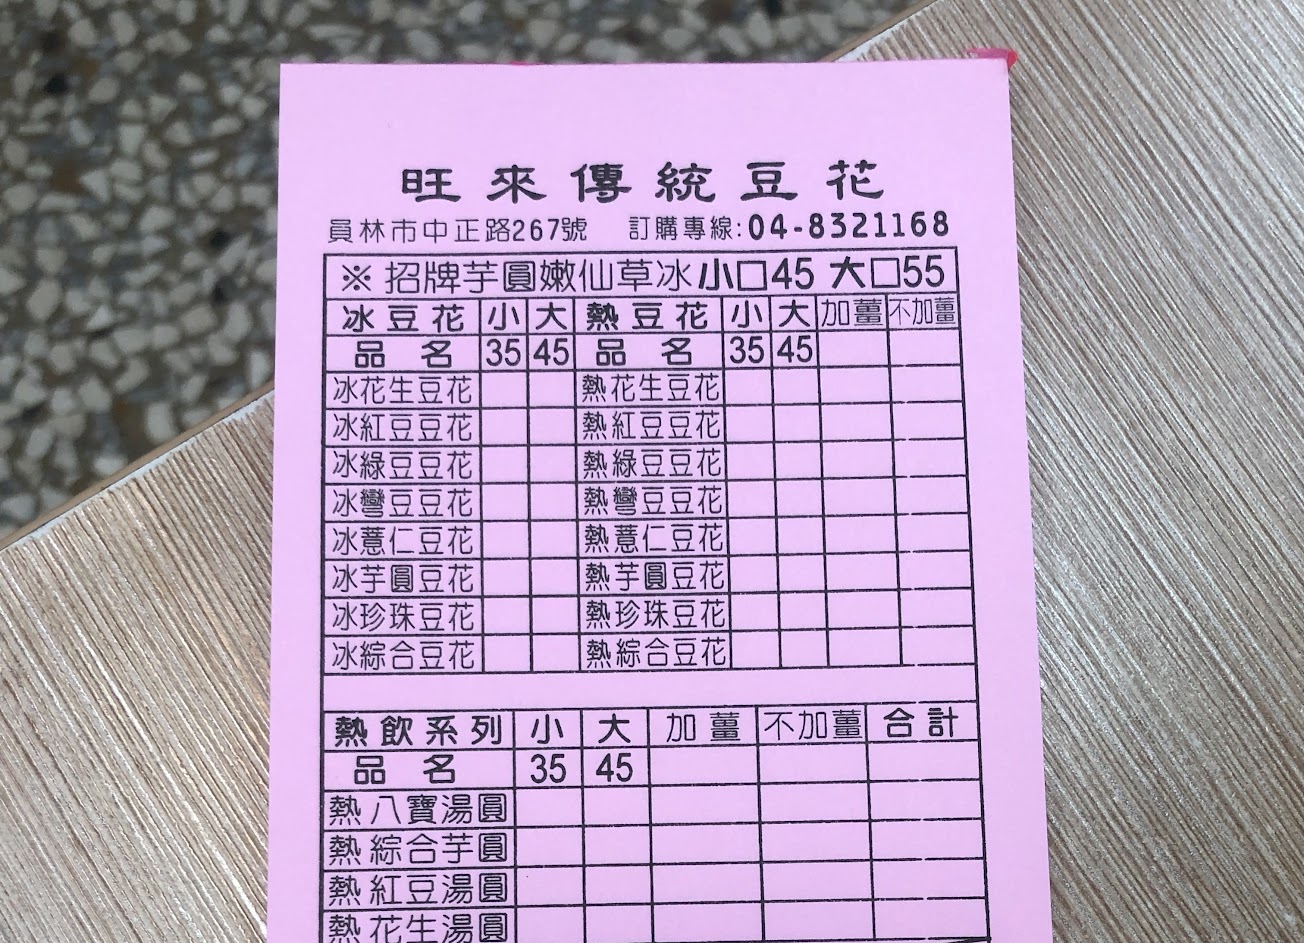 旺來傳統豆花
員林市中正路267號 訂購專線:04-8321168
※ 招牌芋圓嫩仙草冰 小□45 大□55
冰豆花 小 大 熱豆花 小 大 加薑 不加薑
品名 35 45 品名 35 45
冰花生豆花 熱花生豆花
冰紅豆豆花 熱紅豆豆花
冰綠豆豆花 熱綠豆豆花
冰彎豆豆花 熱彎豆豆花
冰薏仁豆花 熱薏仁豆花
冰芋圓豆花 熱芋圓豆花
冰珍珠豆花 熱珍珠豆花
冰綜合豆花 熱綜合豆花
熱飲系列 小 大 加薑 不加薑 合計
品名 35 45
熱八寶湯圓
熱綜合芋圓
熱紅豆湯圓
熱花生湯圓